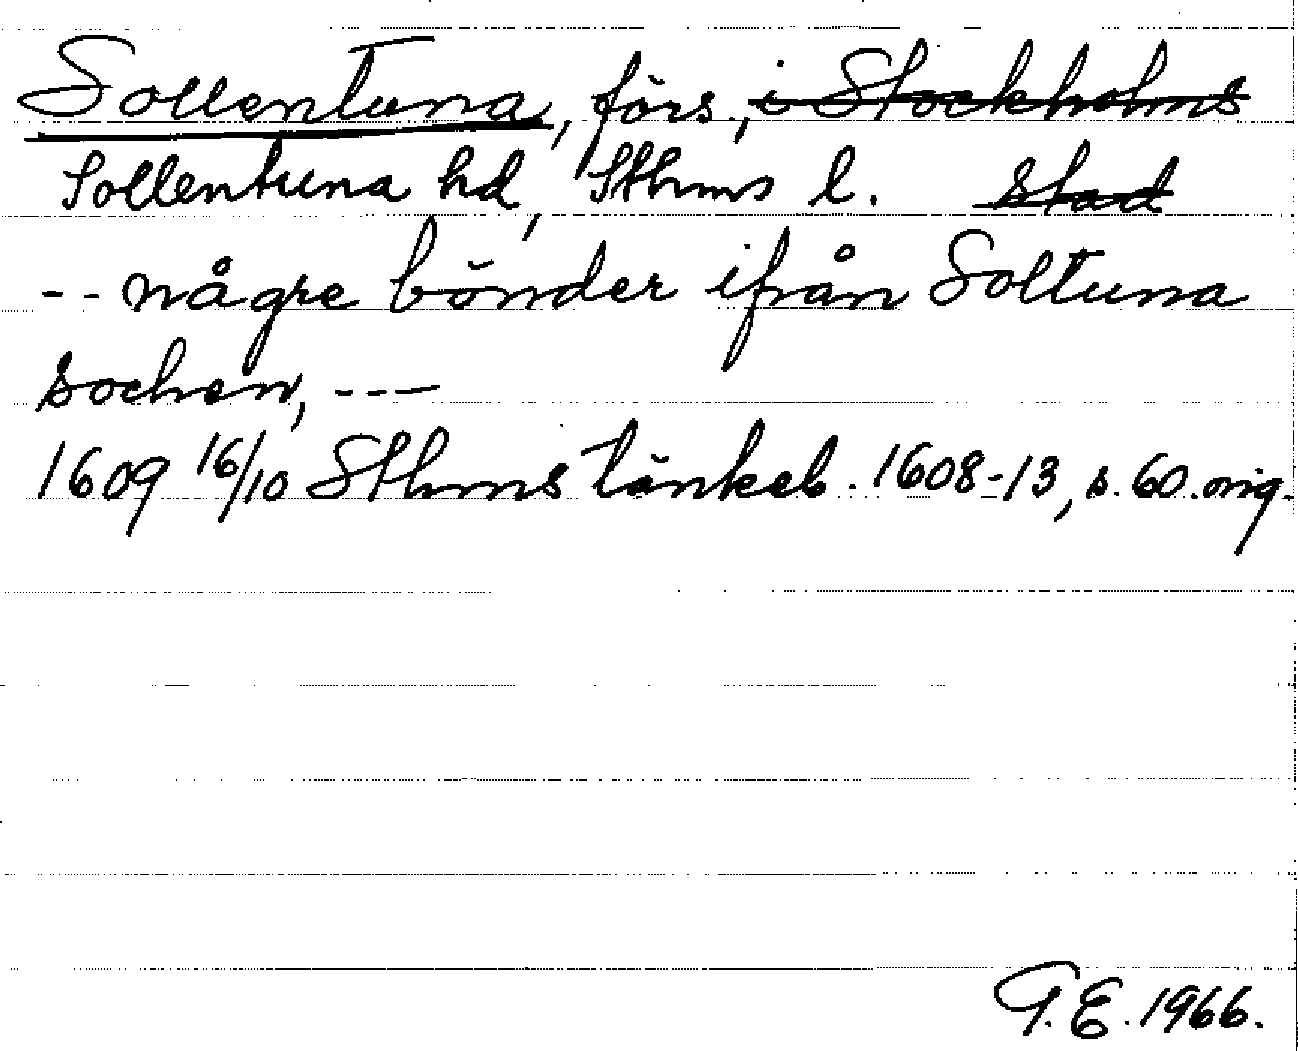 Sollentuna, förs., i Stockholms
Sollentuna hd, Sthms l. stad
-- någre bönder ifrån Soltuna
sochen, ---
1609 16/10 Sthms tänkeb. 1608-13, s. 60. orig.
G.E. 1966.